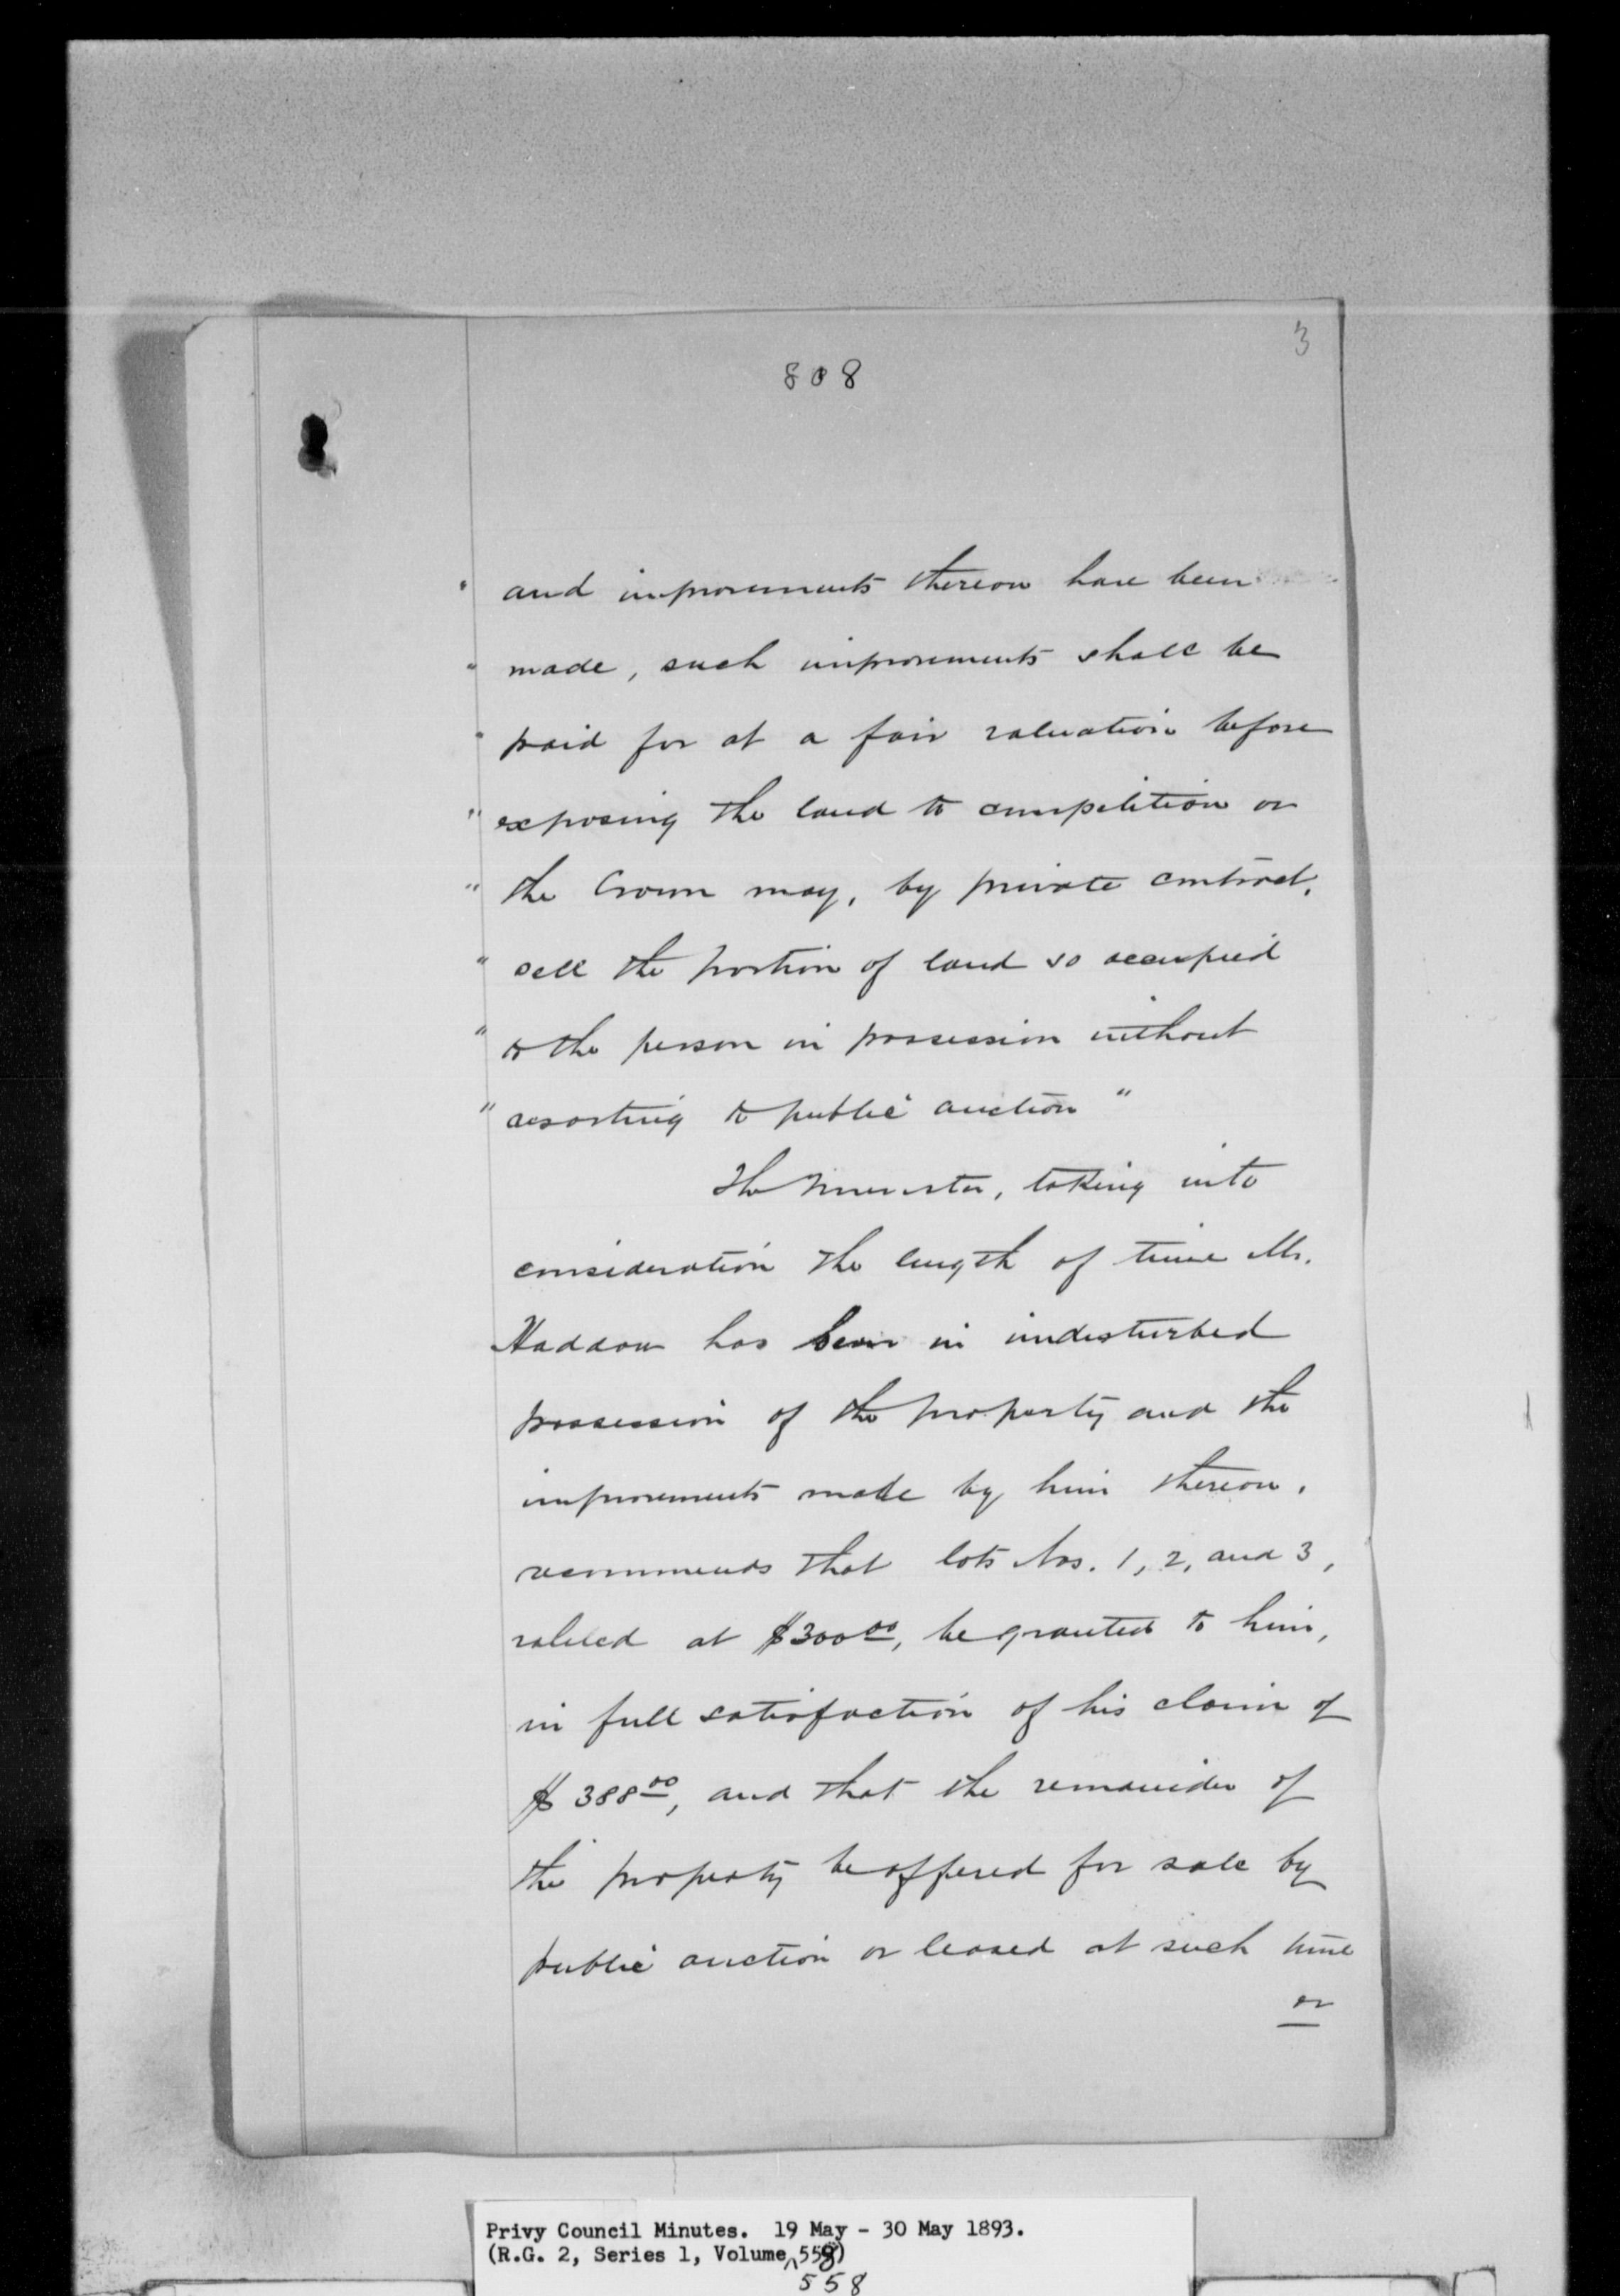 3
808
" and improvements thereon have been
" made, such improvements shall be
" paid for at a fair valuation before
" exposing the land to competition or
" the Crown may, by private contract,
" sell the portion of land so occupied
" to the person in possession without
" resorting to public auction "
The Minister, taking into
consideration the length of time Mr.
Haddow has been in undisturbed
possession of the property and the
improvements made by him thereon,
recommends that lots Nos. 1, 2, and 3,
valued at $300.00, be granted to him,
in full satisfaction of his claim of
$388.00, and that the remainder of
the property be offered for sale by
public auction or leased at such time
or
Privy Council Minutes. 19 May - 30 May 1893.
(R.G. 2, Series 1, Volume 558)
558